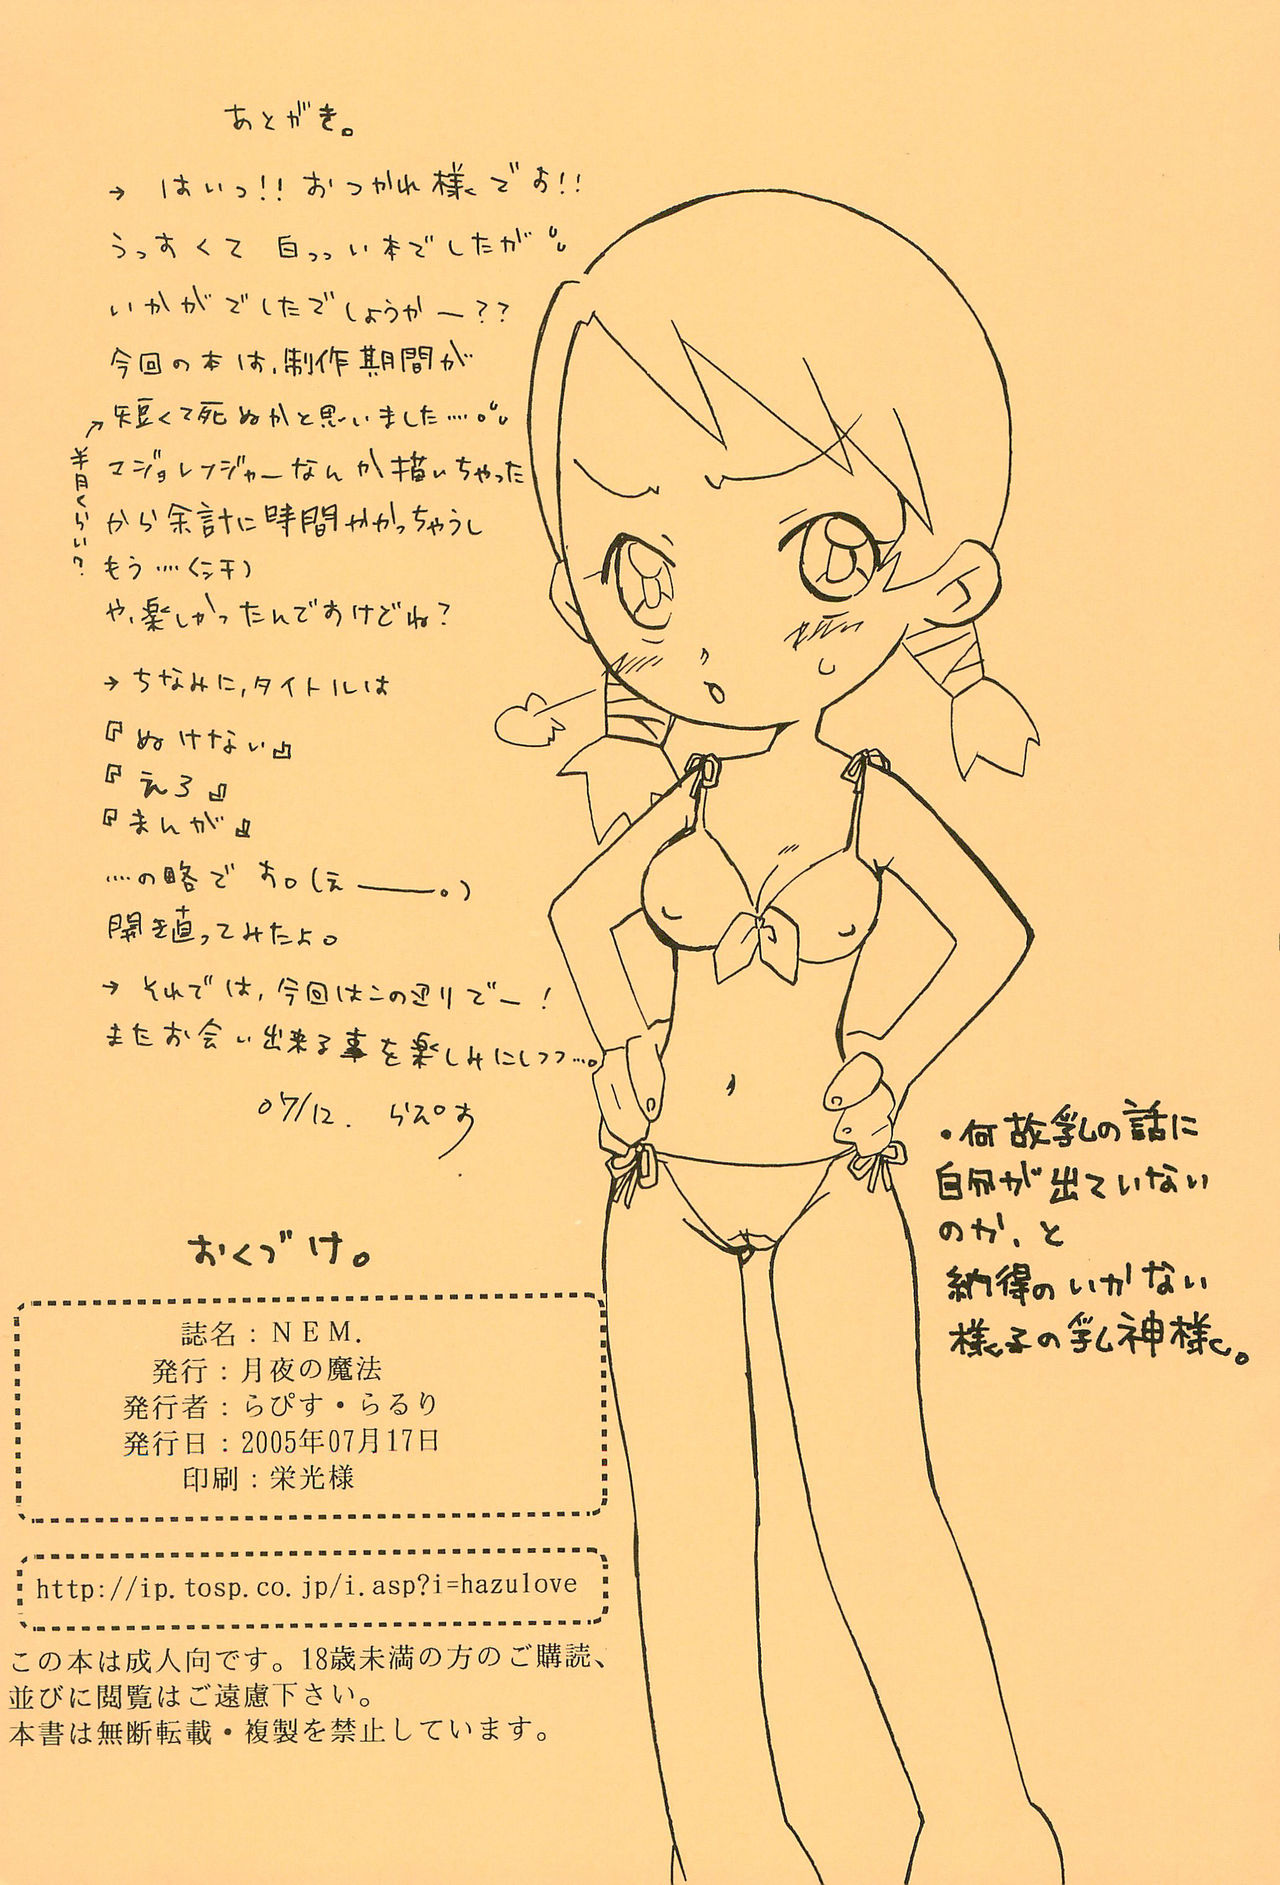 あとがき。
→ はいっ!! おつかれ様です!!
うっすくて 白っっい本でしたが
いかがでしたでしょうかー??
今回の本は、制作期間が
短くて死ぬかと思いました…。
半月くらい?
マジョレンジャーなんか描いちゃった
から余計に時間かかっちゃうし
もう…(汗)
や、楽しかったんですけどね?
→ ちなみに、タイトルは
『ぬけない』
『えろ』
『まんが』
…の略です。(えー。)
開き直ってみたよ。
→ それでは、今回はこの辺りでー!
またお会い出来る事を楽しみにしつつ…。
07/12. らぴす
・何故乳の話に
自分が出ていない
のか、と
納得のいかない
様子の乳神様。
おくづけ。
誌名:NEM.
発行:月夜の魔法
発行者:らぴす・らるり
発行日:2005年07月17日
印刷:栄光様
http://ip.tosp.co.jp/i.asp?i=hazulove
この本は成人向です。18歳未満の方のご購読、
並びに閲覧はご遠慮下さい。
本書は無断転載・複製を禁止しています。